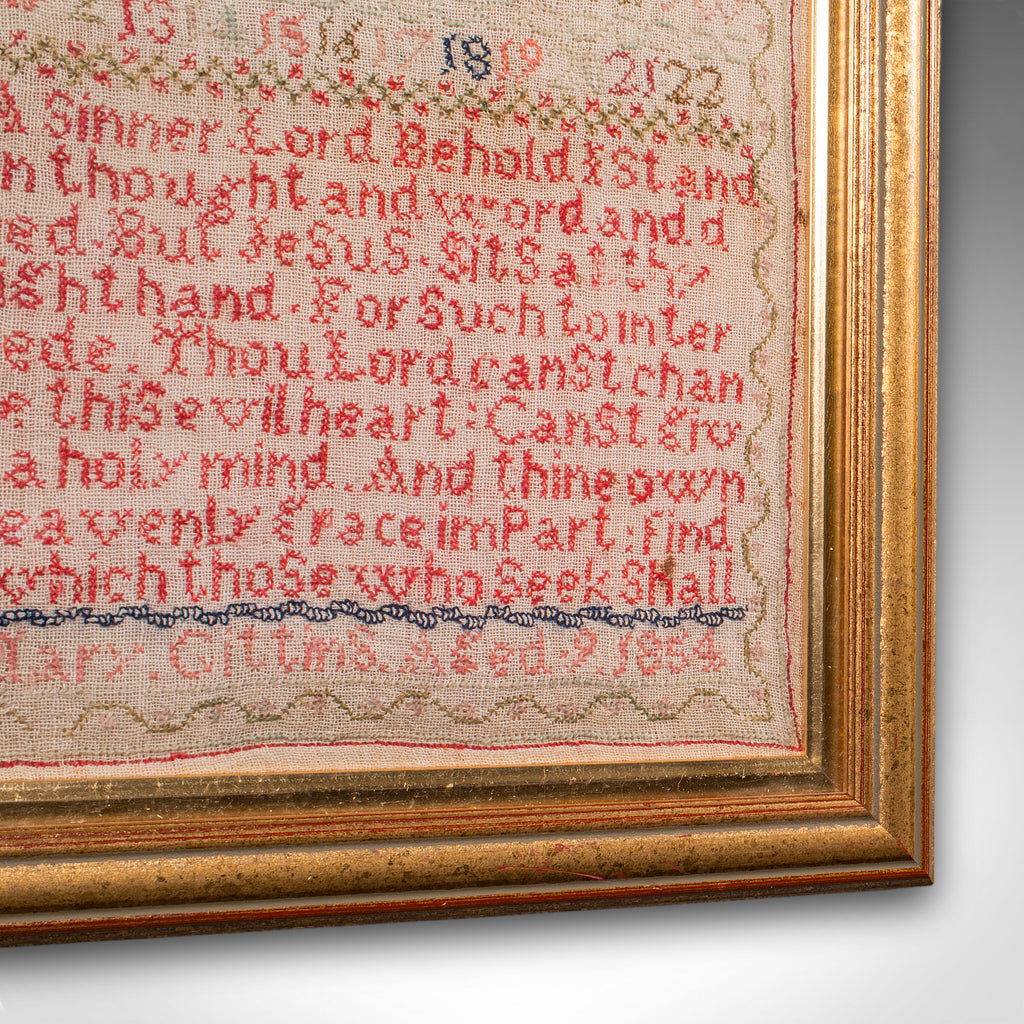 13 14 15 16 17 18 19 21 22
A Sinner Lord Behold I Stand
n thought and word and d
ed. But JeSuS. SitS at thy
ight hand. For Such to inter
ede. Thou Lord canSt chan
e thiS evil heart: CanSt giv
a holy mind. And thine own
eavenly grace imPart: find
which thoSe who Seek Shall
Mary. Gittins. Aged. 9 1854